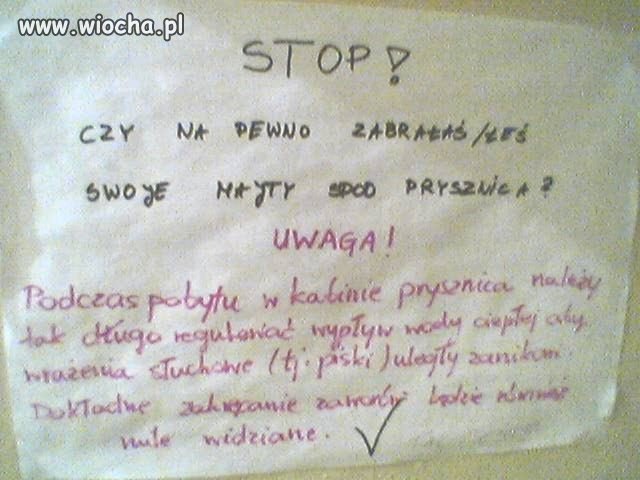 www.wiocha.pl
STOP!
CZY NA PEWNO ZABRAŁAŚ/ŁEŚ
SWOJE MAJTY SPOD PRYSZNICA?
UWAGA!
Podczas pobytu w kabinie prysznica należy
tak długo regulować wypływ wody ciepłej aby
wrażenia słuchowe (tj. piski) uległy zanikom.
Dokładne zakręcanie zaworów będzie również
mile widziane.